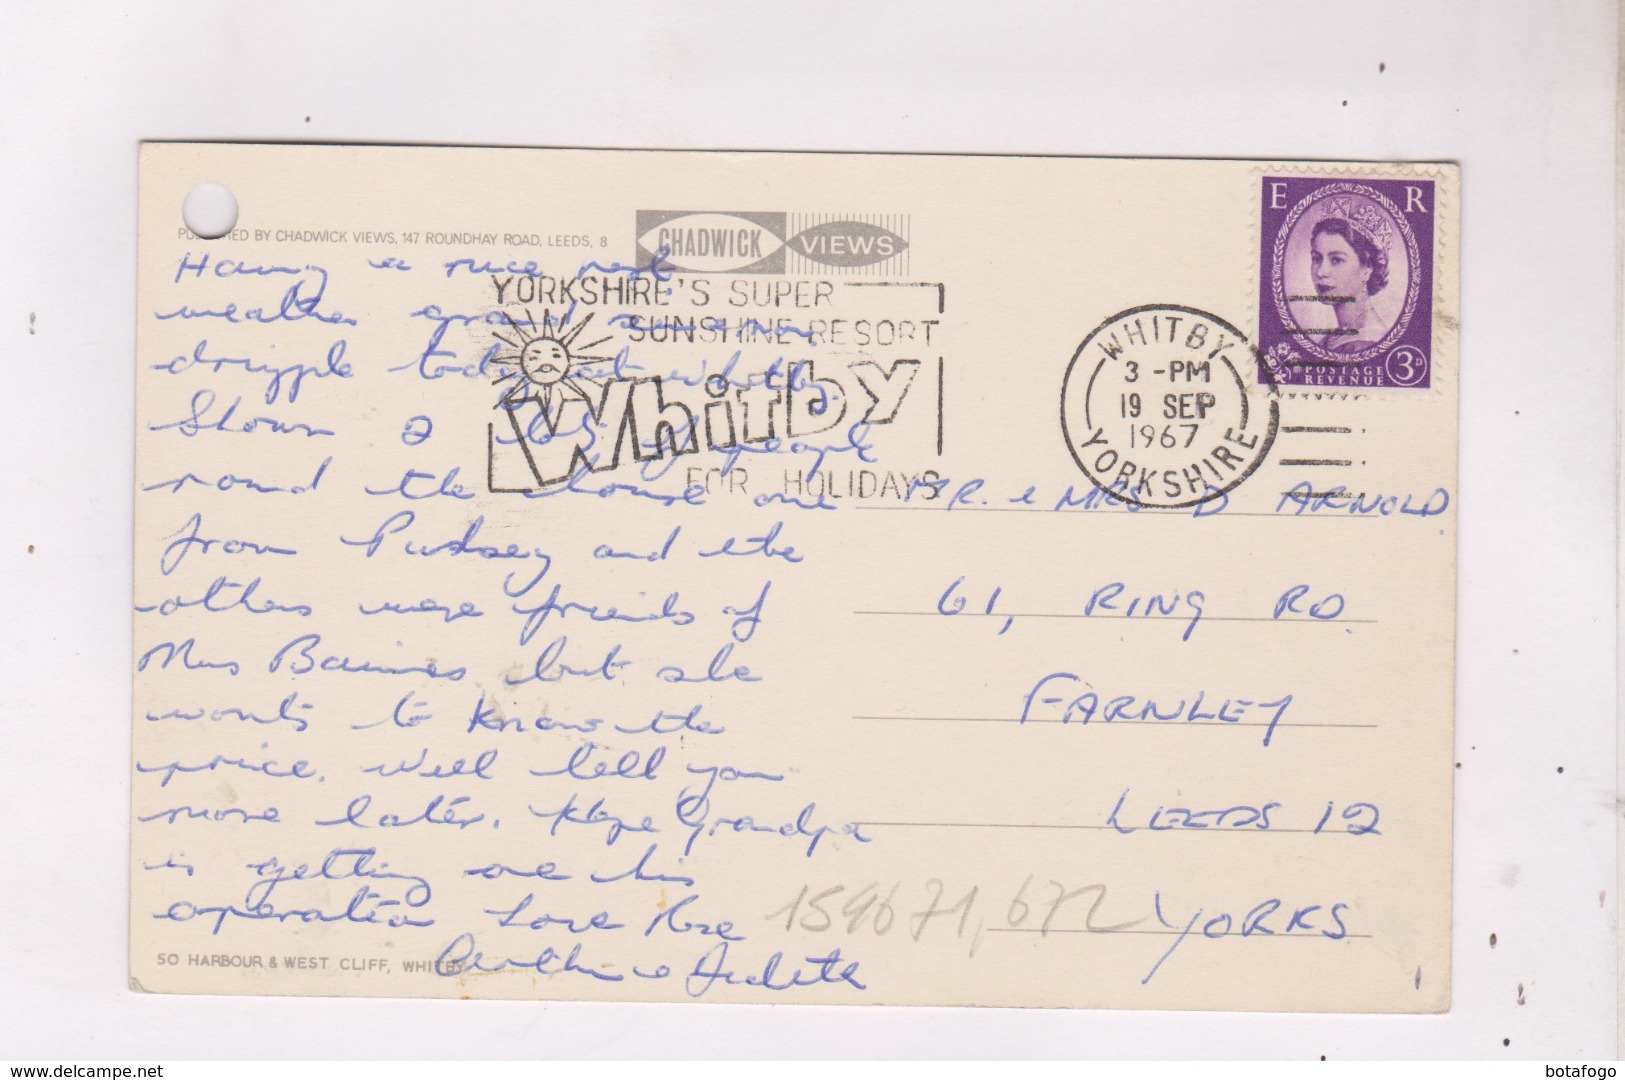 PUBLISHED BY CHADWICK VIEWS, 147 ROUNDHAY ROAD, LEEDS, 8
CHADWICK VIEWS
YORKSHIRE'S SUPER
SUNSHINE RESORT
Whitby
FOR HOLIDAYS
WHITBY
3 -PM
19 SEP
1967
YORKSHIRE
E R
POSTAGE
REVENUE
3D
Having a nice rest
weather grand
drizzle today at Whitby.
Shown 2 lots of people
round the house one
from Pudsey and the
others were friends of
Mrs Baines but she
wants to know the
price. Will tell you
more later. Hope Grandpa
is getting over his
operation Love Rose
Arthur & Judith
MR. & MRS D ARNOLD.
61, RING RD.
FARNLEY
LEEDS 12
YORKS.
159671,672
50 HARBOUR & WEST CLIFF, WHITBY
www.delcampe.net
botafogo